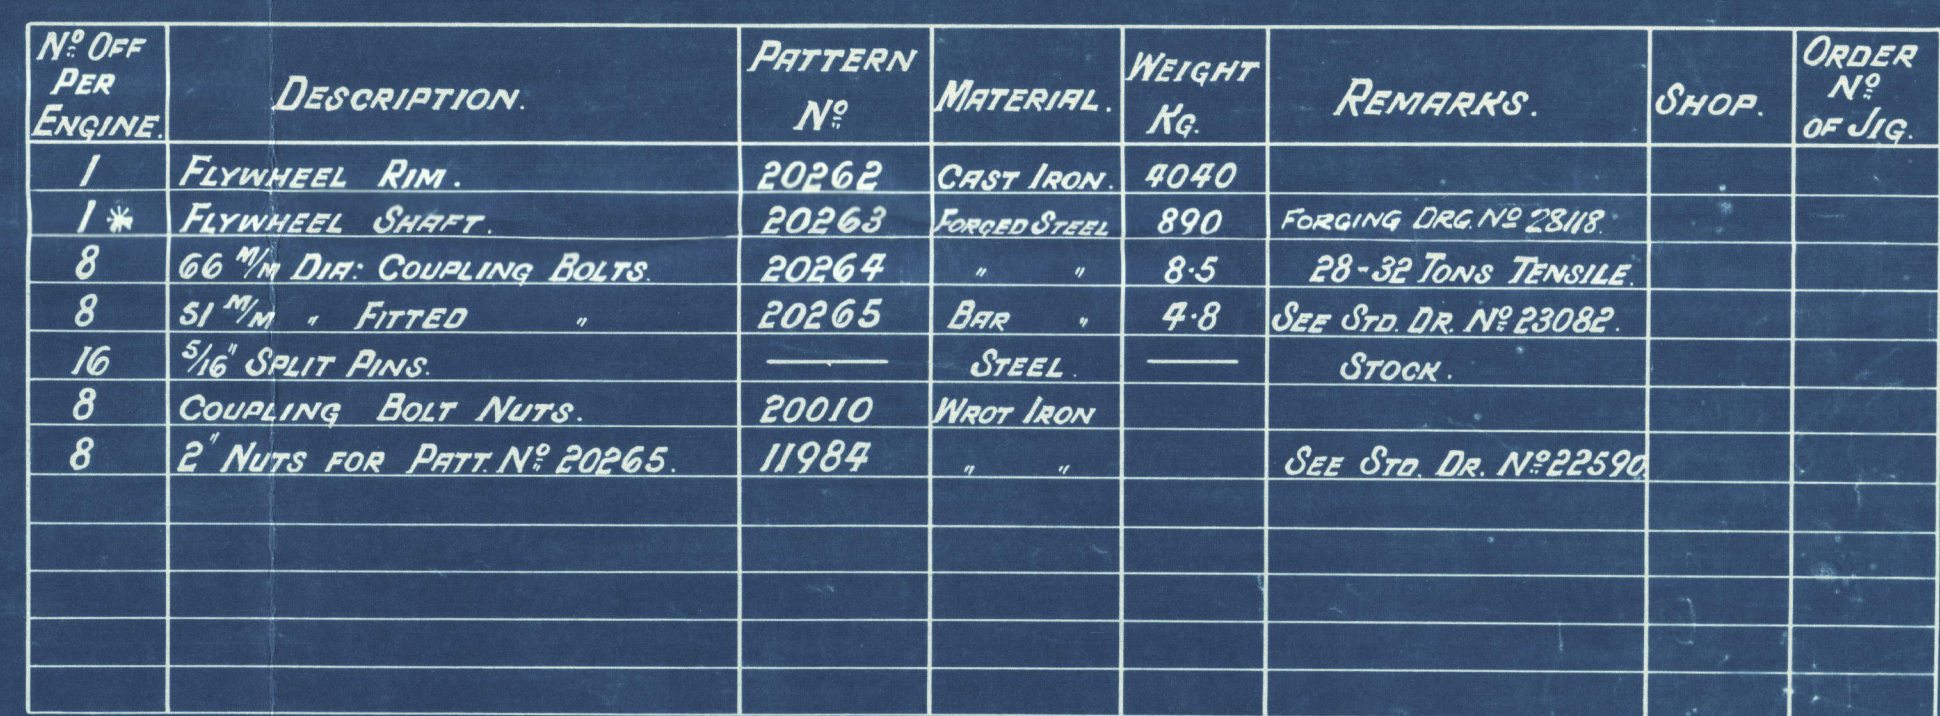 Nº OFF PER ENGINE. DESCRIPTION. PATTERN Nº MATERIAL. WEIGHT KG. REMARKS. SHOP. ORDER Nº OF JIG.
1 FLYWHEEL RIM. 20262 CAST IRON. 4040
1 * FLYWHEEL SHAFT. 20263 FORGED STEEL 890 FORGING DRG. Nº 28118.
8 66 M/M DIA: COUPLING BOLTS. 20264 " " 8·5 28-32 TONS TENSILE.
8 51 M/M " FITTED " 20265 BAR " 4·8 SEE STD. DR. Nº 23082.
16 5/16" SPLIT PINS. — STEEL. — STOCK.
8 COUPLING BOLT NUTS. 20010 WROT IRON
8 2" NUTS FOR PATT. Nº 20265. 11984 " " SEE STD. DR. Nº 22590.